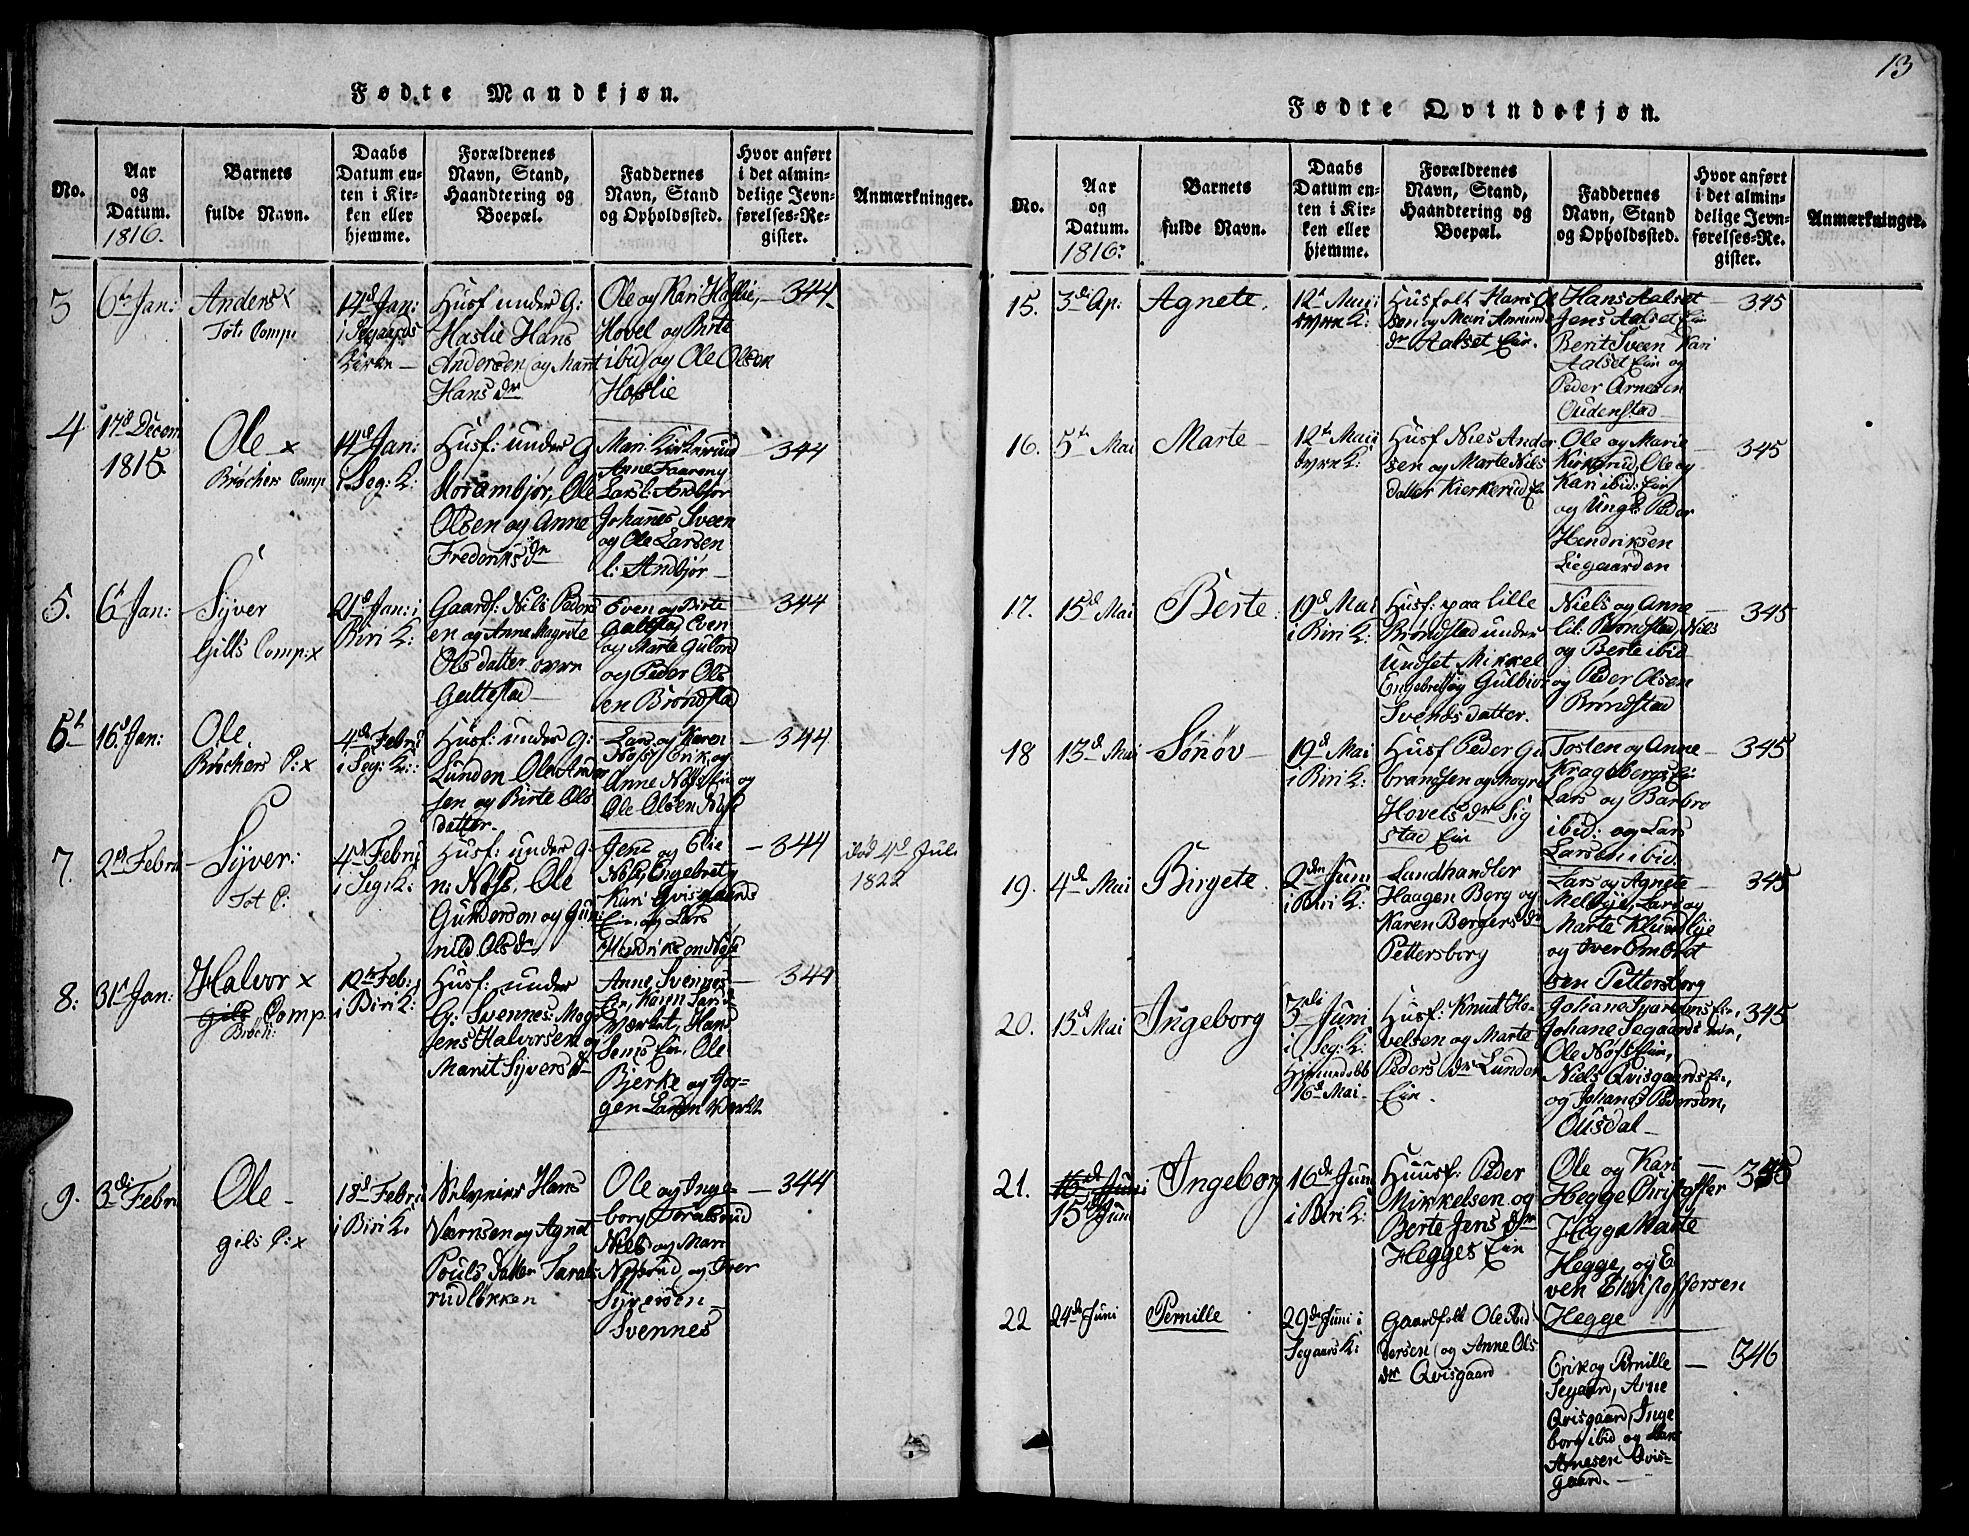 Fødte Mandkjøn.
No.
Aar
og
Datum.
1816.
Barnets
fulde Navn.
Daabs
Datum en-
ten i Kir-
ken eller
hjemme.
Forældrenes
Navn, Stand,
Haandtering og
Boepæl.
Faddernes
Navn, Stand
og Opholdssted.
Hvor anført
i det almin-
delige Jevn-
førelses-Re-
gister.
Anmærkninger.
3
6te Jan:
Anders x
Tot: Comp:
14d Jan:
i Segaards
Kirke —
Husf under G:
Haslie Hans
Andersen og Marit
Hans dr
Ole og Kari Haslie,
Hovel og Birte
ibid og Ole Olsen
Hofslie
344
4
17d Decem
1815.
Ole x
Brøchers Comp
14d Jan:
i Seg: K:
Husf: under G
Ole
Olsen og Anne
Frederiks dr
Mari Kirkerud
Anne Faareng
Lars l: Andbjør
Johanes Sveen
og Ole Larsen
l: Andbjør —
344
5.
6t Jan:
Syver
Gills Comp: x
21d Jan: i
Biri K:
Gaardf: Nils Peders
en og Anne Magrete
Ols datter øvre
Galtestad —
Even og Birte
Galtestad Even
og Marte Gulord
og Peder Ols
en Brøndstad
344
6t
16d Jan:
Ole.
Brøchers C: x
4de Febru
i Seg: K:
Husf: under G:
Lunden Ole Ander
sen og Birte Ols
datter.
Lars og Karen
Nøss, Erik og
Anne Nøss Ein og
Ole Olsen Nøss
344
7.
2den Febru
Syver:
Tot C:
4de Febru
i Seg: K:
Husf: under G:
n: Nøss, Ole
Gunderson og Gun
nild Ols dr
Jens og Elie
Nøss, Engebret og
Kari Qvisgaards
Ein. og Lars
Hendriksen Nøss
344
død 4d Juli
1822
8:
31t Jan:
Halvor x
gils Comp
Brøch:
12te Feb:
i Biri K:
Husf: under
G: Svennes: Mog
ens Halvorsen og
Marit Syvers dr
Anne Svennes
Ein, Karen Lars dr
Værket, Hans
Sems Ein. Ole
Bjerke og Jør-
gen Larsen Verket
344
9.
3di Febru
Ole —
gils C: x
18d Febru
i Biri K:
Selveier Hans
Værnsen og Agnet
Pouls Datter Farals
rudløkken
Ole og Inge-
borg Faralsrud
Niels og Mari
Nøssrud og Iver
Syversen
Svennes
344
13
Fødte Qvindekjøn.
No.
Aar
og
Datum.
1816:
Barnets
fulde Navn.
Daabs
Datum en-
ten i Kir-
ken eller
hjemme.
Forældrenes
Navn, Stand,
Haandtering og
Boepæl.
Faddernes
Navn, Stand
og Opholdssted.
Hvor anført
i det almin-
delige Jevn-
førelses-Re-
gister.
Anmærkninger.
15.
3di Ap:
Agnete.
12t Maii
K:
Husfolk Hans Ol
sen og Mari Amund
dr Aalset Ein.
Hans Aalset
Jens Aalset Ein
Berit Sveen Kari
Aalset Ein og
Peder Arnesen
Oudenstad
345
16.
5t Mai
Marte —
12t Maii
K:
Husf Niels Ander
sen og Marte Niels
datter Kierkerud Ein
Ole og Marie
Kirkerud, Ole og
Kari ibid: Ein
og Ungk Peder
Hendriksen
Liegaarden
345
17.
15d Mai
Berte.
19d Mai
i Biri K:
Husf: paa lille
Brøndstad under
Undset Mikkel
Engebrets og Gulbiør
Svends datter.
Niels og Anne
lil: Brøndstad, Niels
og Berte ibid
og Peder Olsen
Brøndstad
345
18
13d Mai
Sønøv —
19d Mai
i Biri K:
Husf Peder Gu
brandsen og Magre
Hovels dr Sig
stad Ein
Tosten og Anne
Kragsbergs Ei:
Lars og Barbro
ibid: og Lars
Larsen ibid:
345
19.
4de Mai
Birgete.
2den Juni
i Biri K:
Landhandler
Haagen Berg og
Karen Borgers dr
Pettersborg
Lars og Agnete
Melbye, Lars og
Marte Klundbye
og Iver Embret
sen Pettersborg
345
20.
13d Mai
Ingeborg
3di Juni
i Seg: K:
Hjemmedøbt
16d Mai —
Husf: Knut Ho-
velsen og Marte
Peders dr Lunden
Ein.
Johane Ein,
Johane Segaards Ein,
Ole Nøss Ein,
Niels Qvisgaards Ein,
og Johans Pedersen,
Ousdal —
345
21.
16d Juni
15d Juni
Ingeborg
16de Juni
i Biri K:
Huusf: Peder
Mikkelsen og
Berte Jens dr
Hegges Ein
Ole og Kari
Hegge Christoffer
Hegge Marte
Hegge, og E
ven Christoffersen
Hegge
345
22
24de Juni
Pernille
29de Juni i
Segaars K:
Gaardfolk Ole And
dersen og Anne Ols
dr Qvisgaard
Erik og Pernille
Segaard, Arne
Qvisgaard, Inge
borg ibid og Lars
Arnesen Qvis-
gaard. —
346